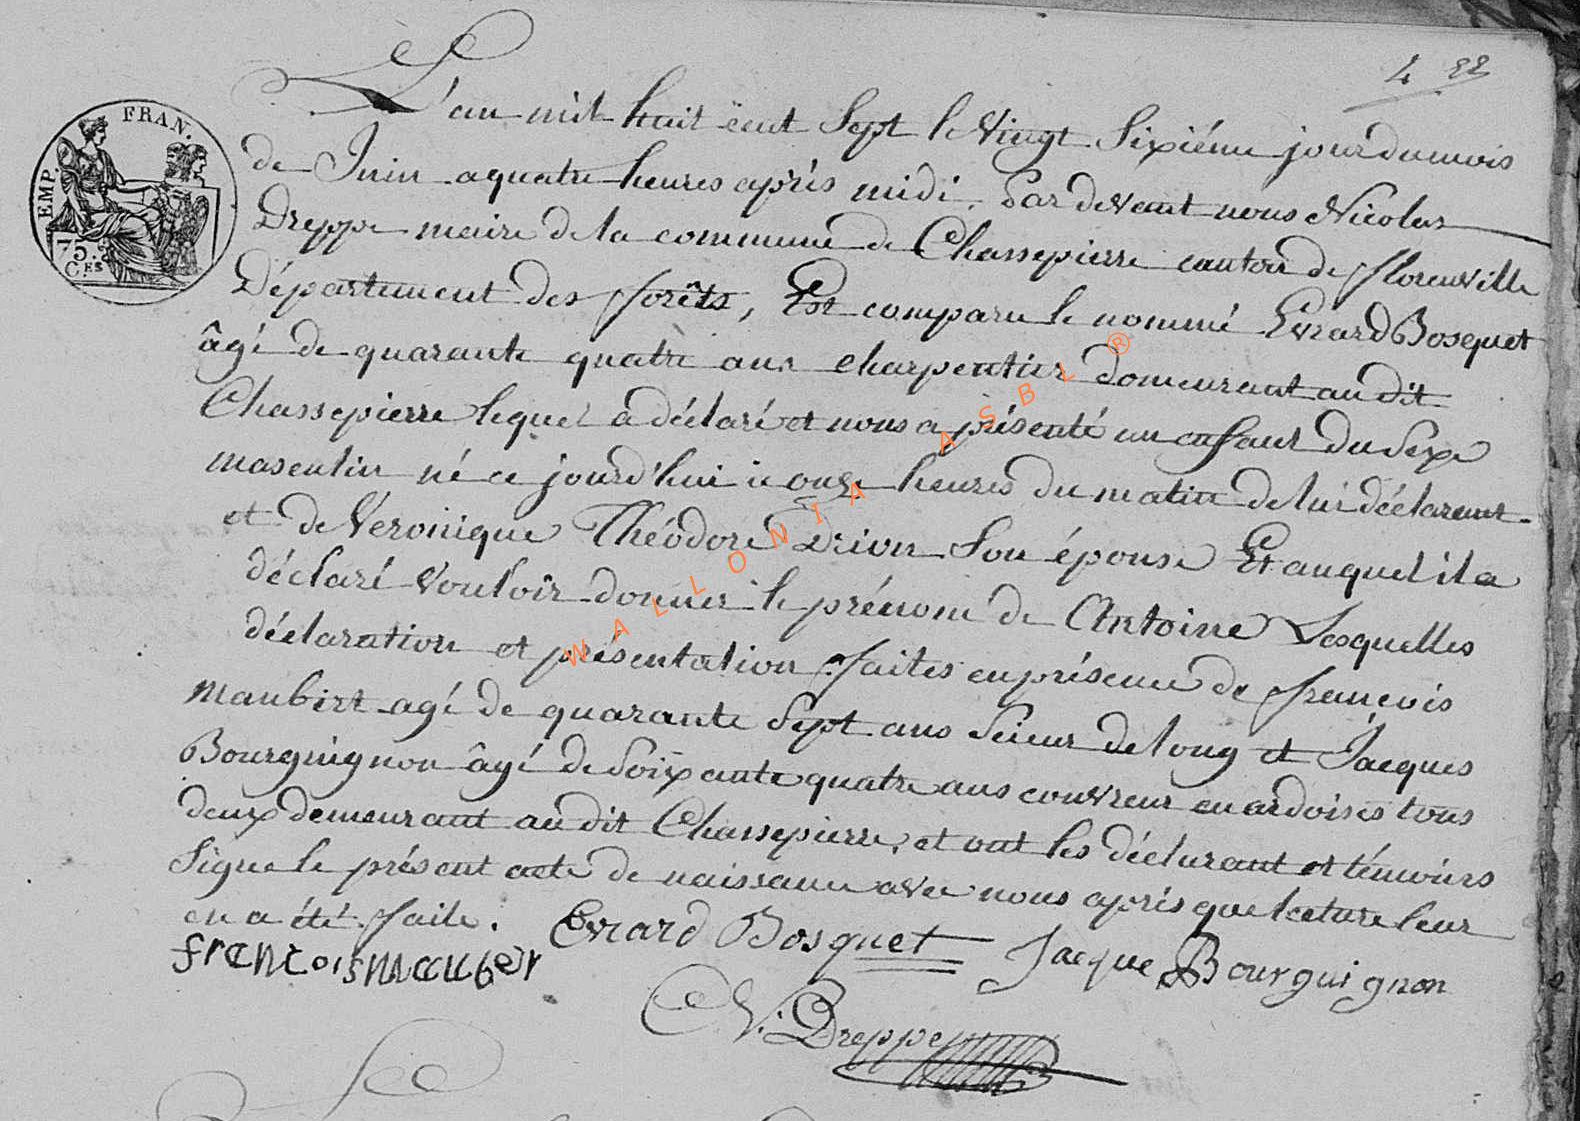 4 22
EMP. FRAN.
75. C.ES
L'an mil huit cent Sept le Vingt Sixiéme jour du mois
de Juin a quatre heures après midi. Par devant nous Nicolas
Dreppe maire de la commune de Chassepierre canton de florenville
Département des forêts, Est comparu le nommé Evrard Bosquet
âgé de quarante quatre ans charpentier domeurant au dit
Chassepierre lequel a déclaré et nous a présenté un enfant du Sexe
masculin né ce jourd'hui à onze heures du matin de lui déclarant
et de Veronique Théodore Drion Son épouse Et auquel il a
déclaré Vouloir donner le prénom de Antoine Lesquelles
déclaration et présentation faites en présence de francois
Maubirt agé de quarante Sept ans Scieur de long et Jacques
Bourguignon âgé de Soixante quatre ans couvreur en ardoises tous
deux demeurant au dit Chassepierre, et ont les déclarant et témoins
Signe le présent acte de naissance avec nous après que lecture leur
en a été faite. Evrard Bosquet Jacque Bourguignon
francois mauber
N. Dreppe
WALLONIA ASBL ®